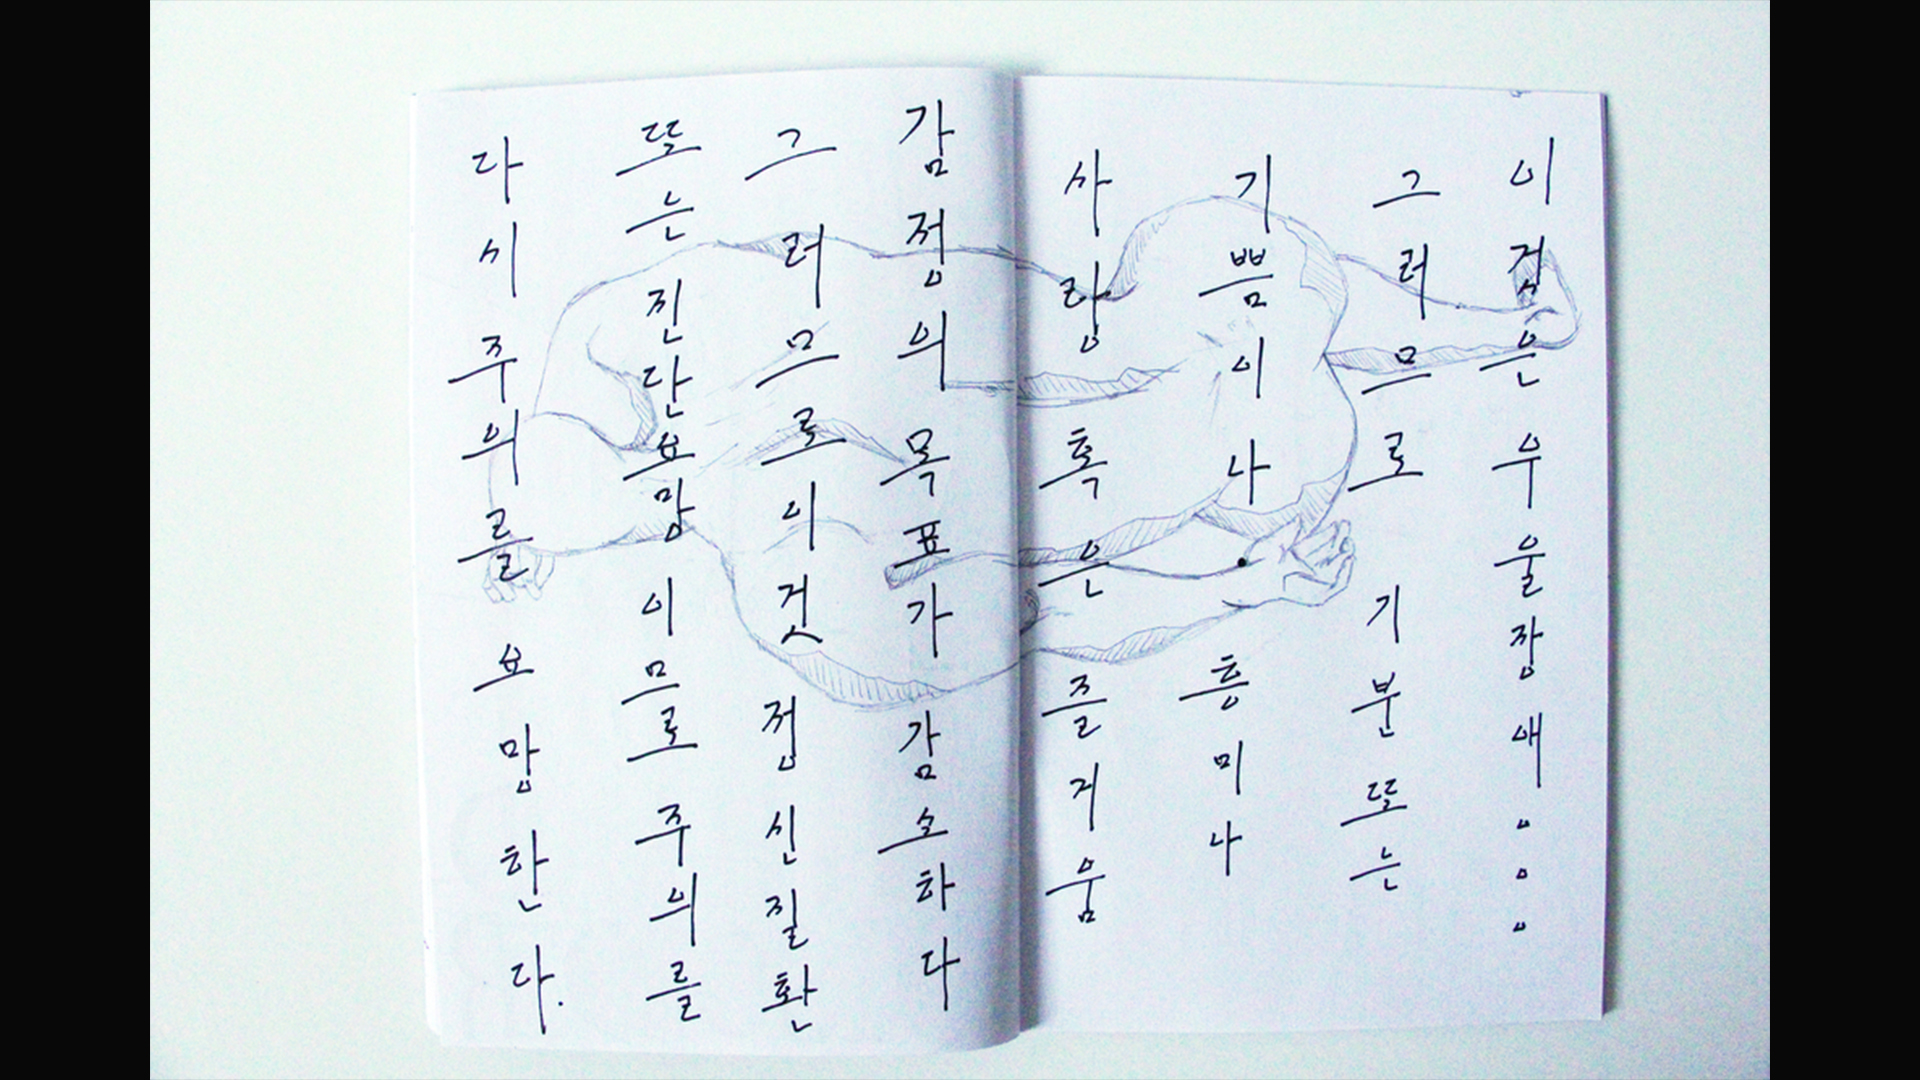 이것은 우울장애。。。
그러므로 기분 또는
기쁨이나 흥미나
사랑 혹은 즐거움
감정의 목표가 감소하다
그러므로 이것 정신질환
또는 진단요망 이므로 주의를
다시 주의를 요망한다.